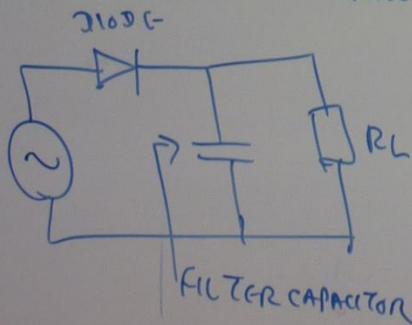 DIODE
RL
FILTER CAPACITOR